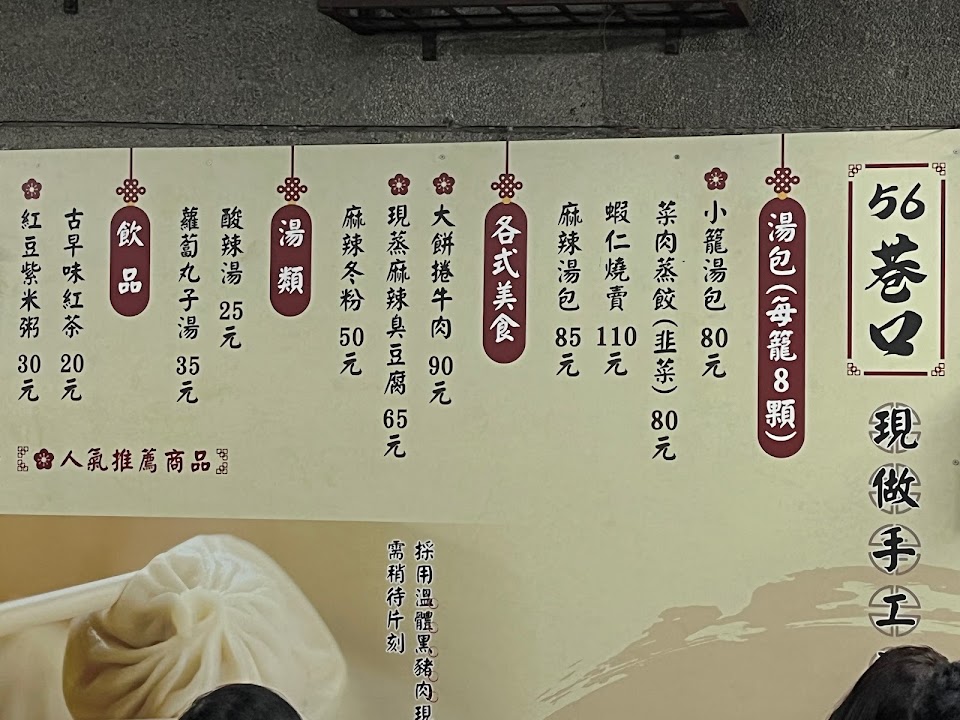 56巷口
現做手工
湯包(每籠8顆)
小籠湯包 80元
菜肉蒸餃(韭菜) 80元
蝦仁燒賣 110元
麻辣湯包 85元
各式美食
大餅捲牛肉 90元
現蒸麻辣臭豆腐 65元
麻辣冬粉 50元
湯類
酸辣湯 25元
蘿蔔丸子湯 35元
飲品
古早味紅茶 20元
紅豆紫米粥 30元
人氣推薦商品
採用溫體黑豬肉現
需稍待片刻